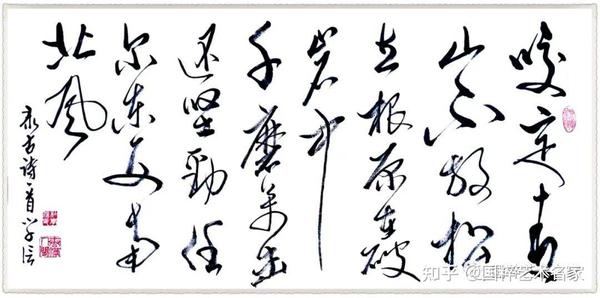 咬定青
山不放松
立根原在破
岩中
千磨万击
还坚劲任
尔东西南
北风
录古诗一首
知乎 @国粹艺术名家